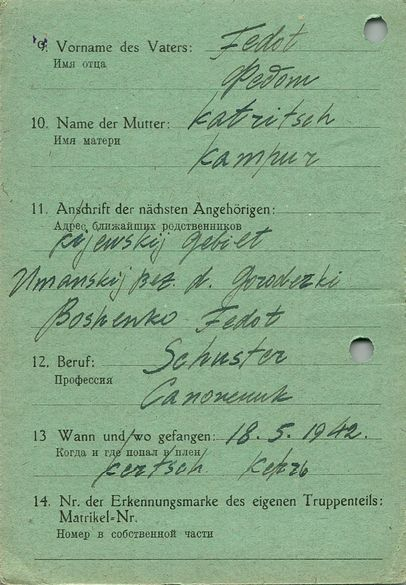 9. Vorname des Vaters: Fedot
Имя отца
Федот
10. Name der Mutter: Katritsch
Имя матери
Kampur
11. Anschrift der nächsten Angehörigen:
Адрес ближайших родственников
Kijewskij Gebiet
Umanskij Bez. d. Gorodezki
Boshenko Fedot
12. Beruf: Schuster
Профессия
Сапожник
13 Wann und/wo gefangen: 18.5.1942.
Когда и где попал в плен
Kertsch Керчь
14. Nr. der Erkennungsmarke des eigenen Truppenteils:
Matrikel-Nr.
Номер в собственной части